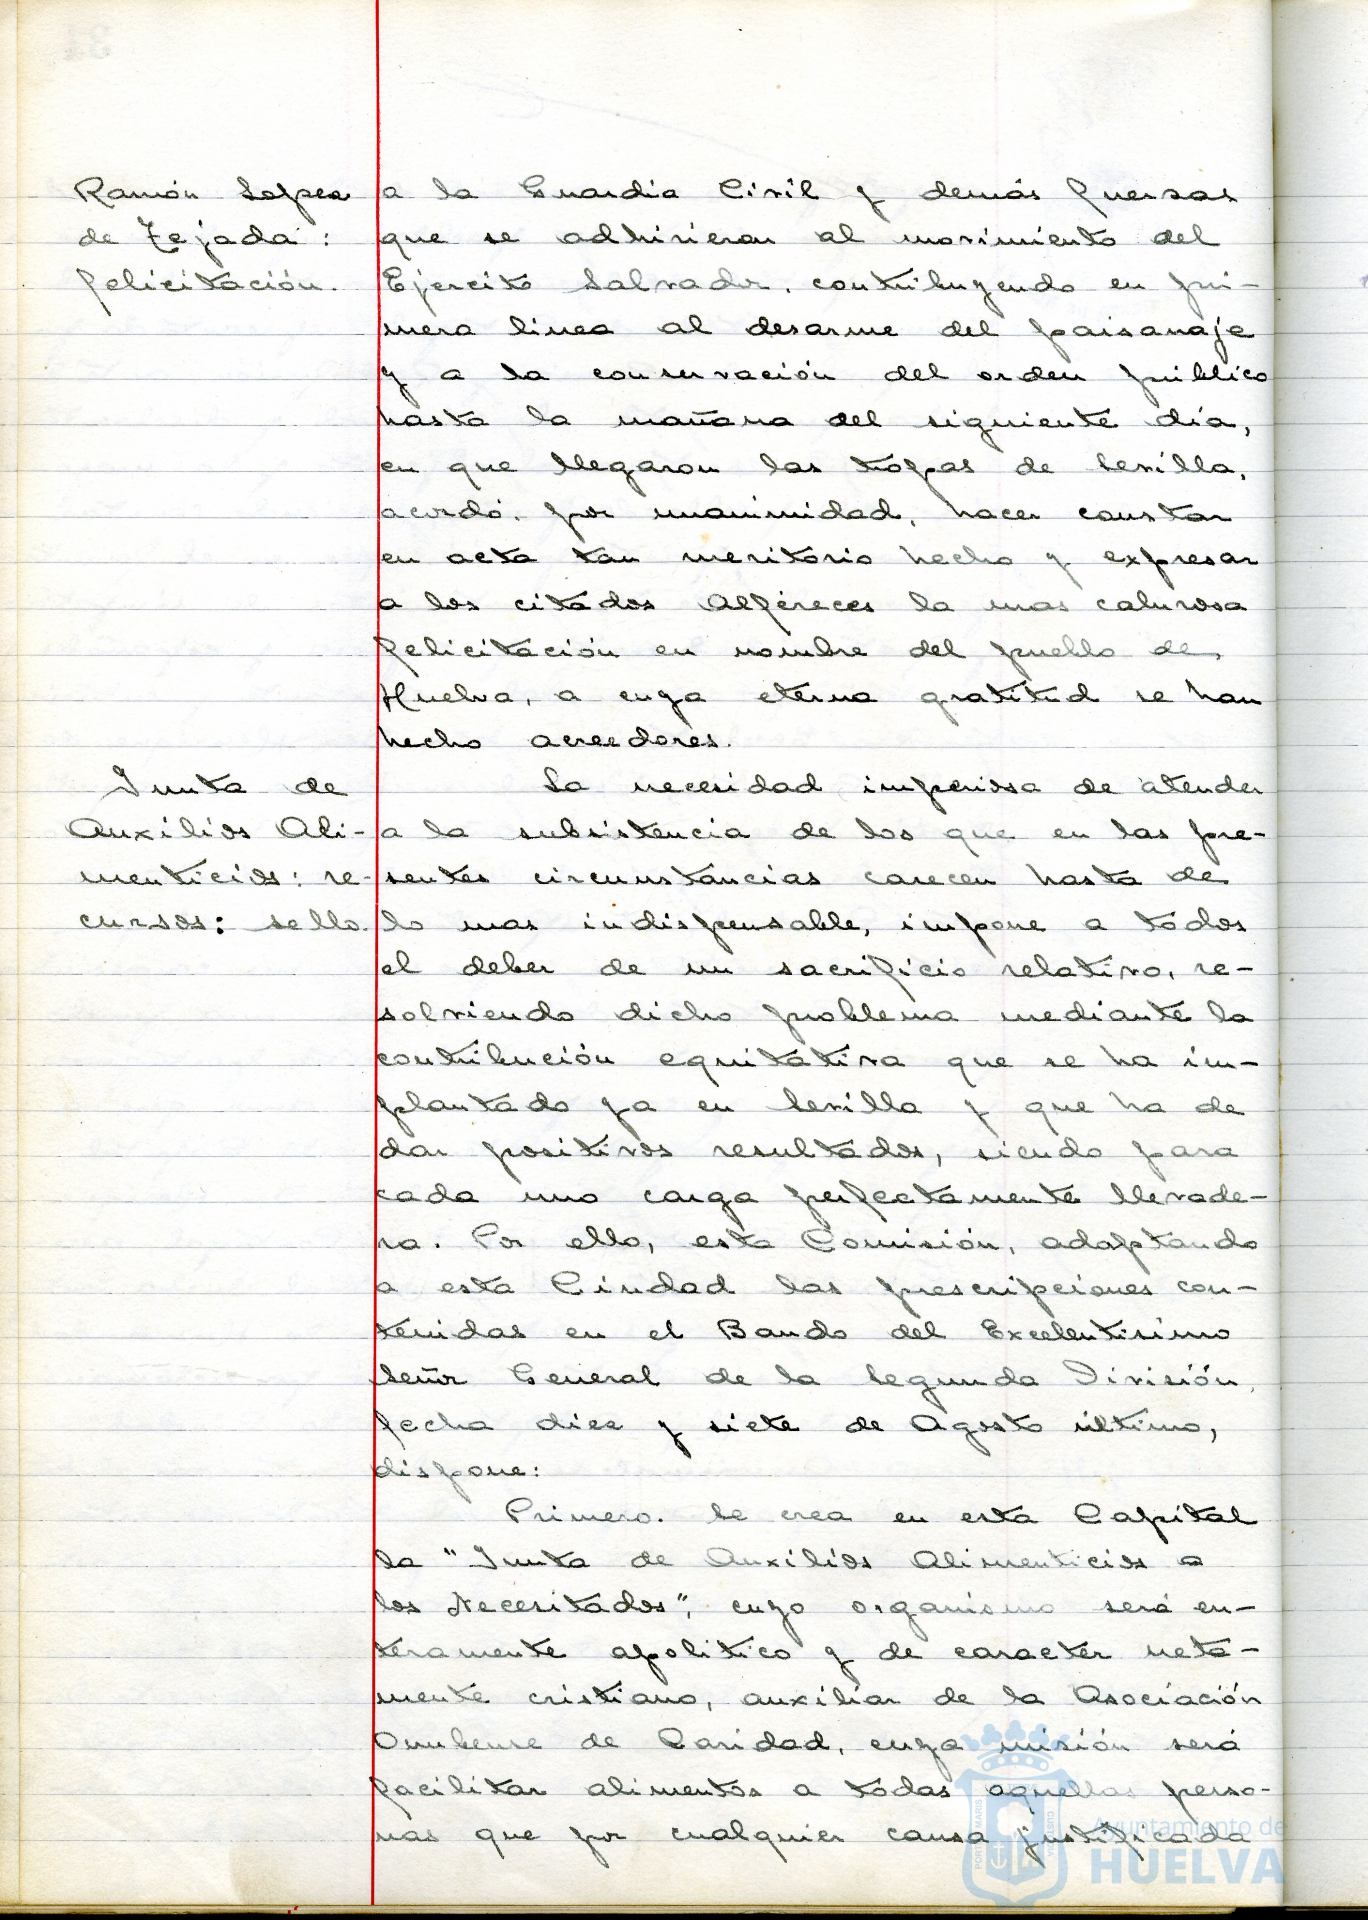 Ramón Lopez
de Tejada:
felicitación.
a la Guardia Civil y demás fuerzas
que se adhirieron al movimiento del
Ejercito Salvador, contribuyendo en pri-
mera linea al desarme del paisanaje
y a la conservación del orden público
hasta la mañana del siguiente día,
en que llegaron las tropas de Sevilla,
acordó, por unanimidad, hacer constar
en acta tan meritorio hecho y expresar
a los citados Alféreces la mas calurosa
felicitación en nombre del pueblo de
Huelva, a cuya eterna gratitud se han
hecho acreedores.
Junta de
Auxilios Ali-
menticios: re-
cursos: sello.
La necesidad imperiosa de atender
a la subsistencia de los que en las pre-
sentes circunstancias carecen hasta de
lo mas indispensable, impone a todos
el deber de un sacrificio relativo, re-
solviendo dicho problema mediante la
contribución equitativa que se ha im-
plantado ya en Sevilla y que ha de
dar positivos resultados, siendo para
cada uno carga perfectamente llevade-
ra. Por ello, esta Comisión, adaptando
a esta Ciudad las prescripciones con-
tenidas en el Bando del Excelentisimo
Señor General de la Segunda División,
fecha diez y siete de Agosto último,
dispone:
Primero. Se crea en esta Capital
la "Junta de Auxilios Alimenticios a
los Necesitados", cuyo organismo será en-
teramente apolitico y de caracter neta-
mente cristiano, auxiliar de la Asociación
Onubense de Caridad, cuya misión será
facilitar alimentos a todas aquellas perso-
nas que por cualquier causa justificada
Ayuntamiento de
HUELVA